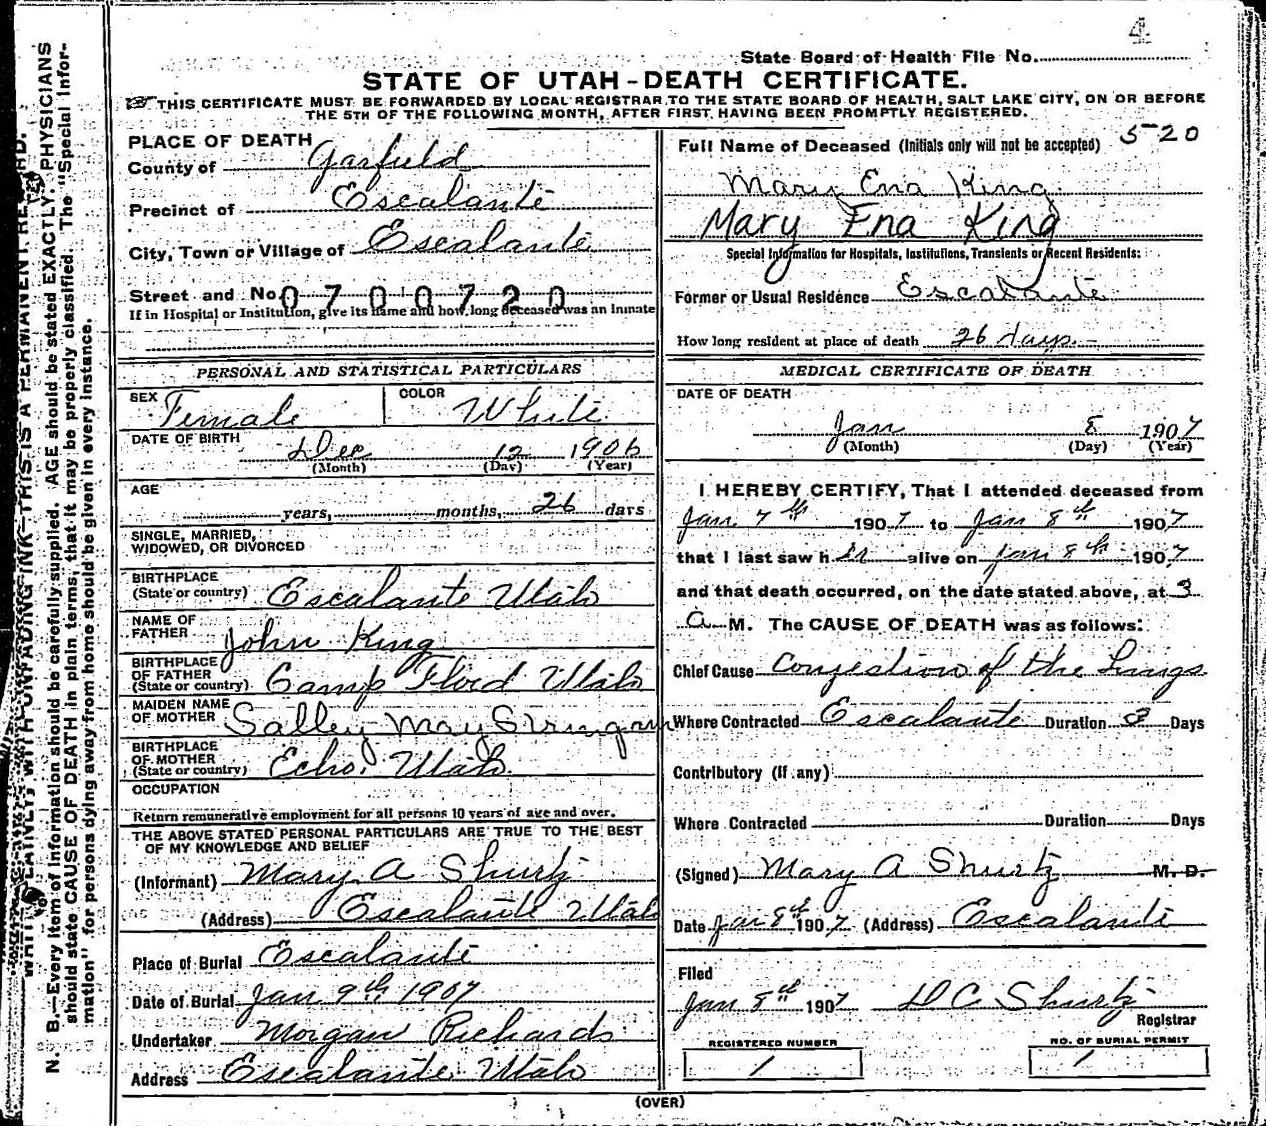 4
State Board of Health File No.
STATE OF UTAH - DEATH CERTIFICATE.
THIS CERTIFICATE MUST BE FORWARDED BY LOCAL REGISTRAR TO THE STATE BOARD OF HEALTH, SALT LAKE CITY, ON OR BEFORE
THE 5TH OF THE FOLLOWING MONTH, AFTER FIRST HAVING BEEN PROMPTLY REGISTERED.
PLACE OF DEATH
County of Garfield
Precinct of Escalante
City, Town or Village of Escalante
Street and No. 0700720
If in Hospital or Institution, give its name and how long deceased was an inmate
PERSONAL AND STATISTICAL PARTICULARS
SEX Female COLOR White
DATE OF BIRTH Dec 12 1906
(Month) (Day) (Year)
AGE
years, months, 26 days
SINGLE, MARRIED,
WIDOWED, OR DIVORCED
BIRTHPLACE
(State or country) Escalante Utah
NAME OF
FATHER John King
BIRTHPLACE
OF FATHER
(State or country) Camp Floid Utah
MAIDEN NAME
OF MOTHER Salley May Stringam
BIRTHPLACE
OF MOTHER
(State or country) Echo, Utah
OCCUPATION
Return remunerative employment for all persons 10 years of age and over.
THE ABOVE STATED PERSONAL PARTICULARS ARE TRUE TO THE BEST
OF MY KNOWLEDGE AND BELIEF
(Informant) Mary A Shurtz
(Address) Escalante Utah
Place of Burial Escalante
Date of Burial Jan 9th 1907
Undertaker Morgan Richards
Address Escalante Utah
Full Name of Deceased (Initials only will not be accepted) 5-20
Mary Ena King
Mary Ena King
Special Information for Hospitals, Institutions, Transients or Recent Residents:
Former or Usual Residence Escalante
How long resident at place of death 26 days
MEDICAL CERTIFICATE OF DEATH
DATE OF DEATH
Jan 8 1907
(Month) (Day) (Year)
I HEREBY CERTIFY, That I attended deceased from
Jan. 7th 1907 to Jan 8th 1907
that I last saw her alive on Jan 8th 1907
and that death occurred, on the date stated above, at 3
a M. The CAUSE OF DEATH was as follows:
Chief Cause Congestion of the Lungs
Where Contracted Escalante Duration 3 Days
Contributory (If any)
Where Contracted Duration Days
(Signed) Mary A Shurtz M. D.
Date Jan 8th 1907 (Address) Escalante
Filed
Jan 8th 1907 D C Shurtz
Registrar
REGISTERED NUMBER
1
NO. OF BURIAL PERMIT
1
(OVER)
WRITE PLAINLY, WITH UNFADING INK—THIS IS A PERMANENT RECORD.
N. B.—Every item of information should be carefully supplied. AGE should be stated EXACTLY. PHYSICIANS
should state CAUSE OF DEATH in plain terms, that it may be properly classified. The "Special Infor-
mation" for persons dying away from home should be given in every instance.